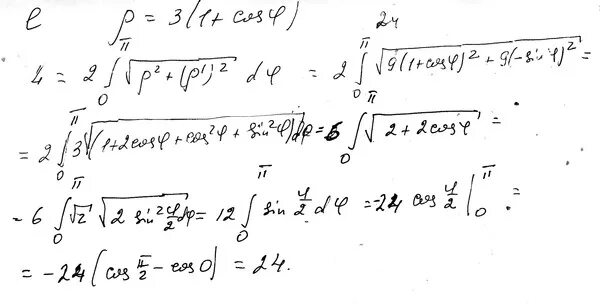 l ρ = 3(1 + cosφ) 24
4 = 2 ∫₀^π √(ρ² + (ρ')²) dφ = 2 ∫₀^π √(9(1+cosφ)² + 9(-sinφ)²) =
= 2 ∫₀^π 3√((1+2cosφ + cos²φ + sin²φ)) dφ = 6 ∫₀^π √(2 + 2cosφ) =
= 6 ∫₀^π √2 √(2 sin² φ/2) dφ = 12 ∫₀^π sin φ/2 dφ = -24 cos φ/2 |₀^π =
= -24 (cos π/2 - cos 0) = 24.